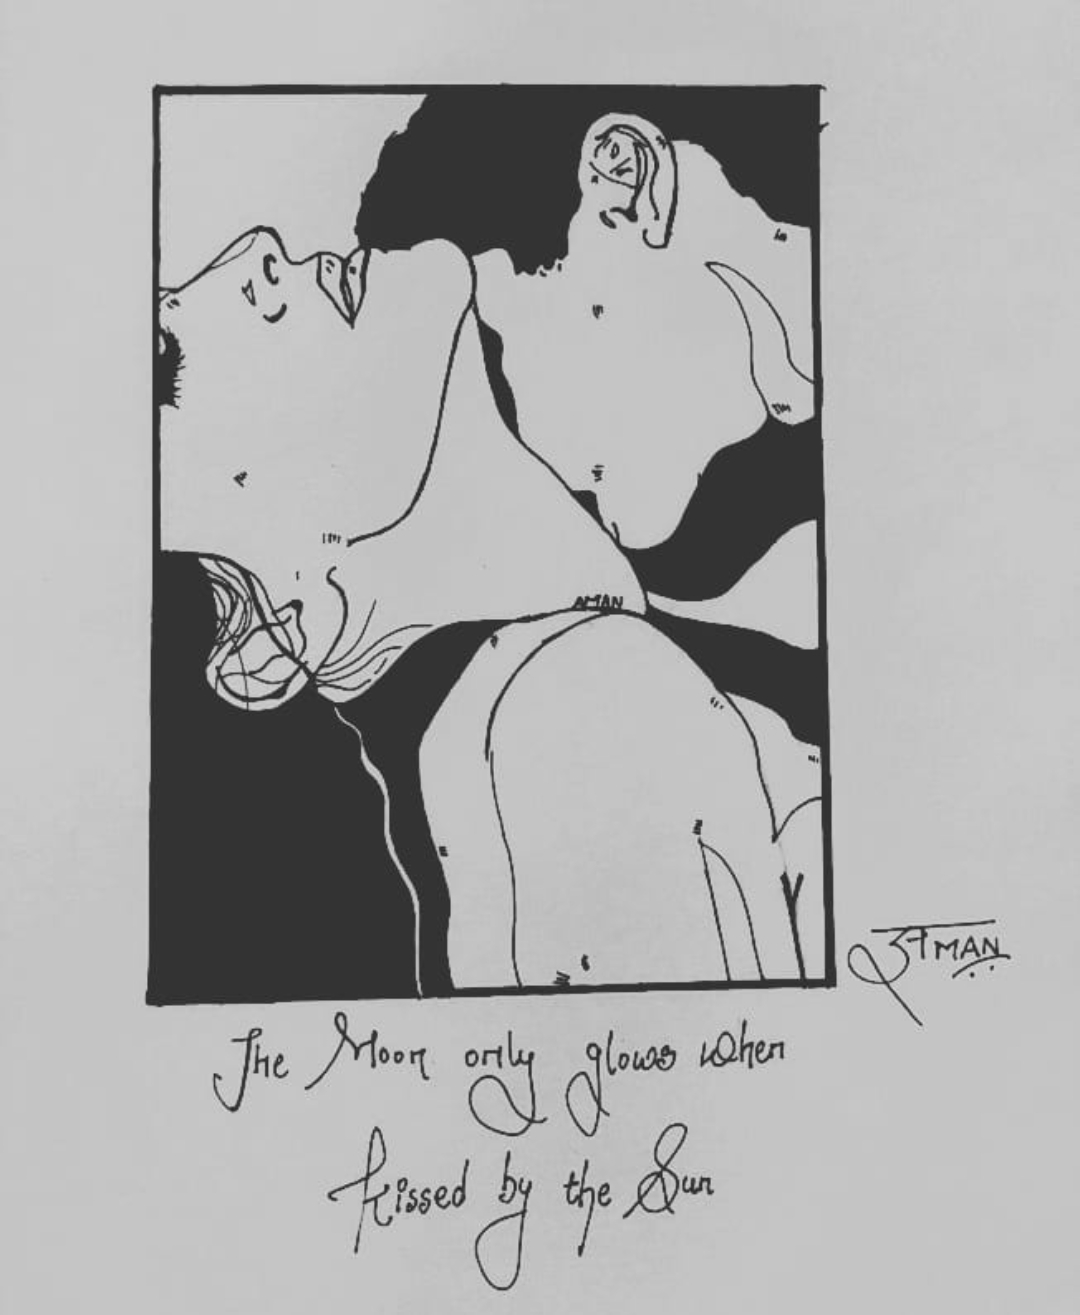 AMAN
अMAN
The Moon only glows when
kissed by the Sun